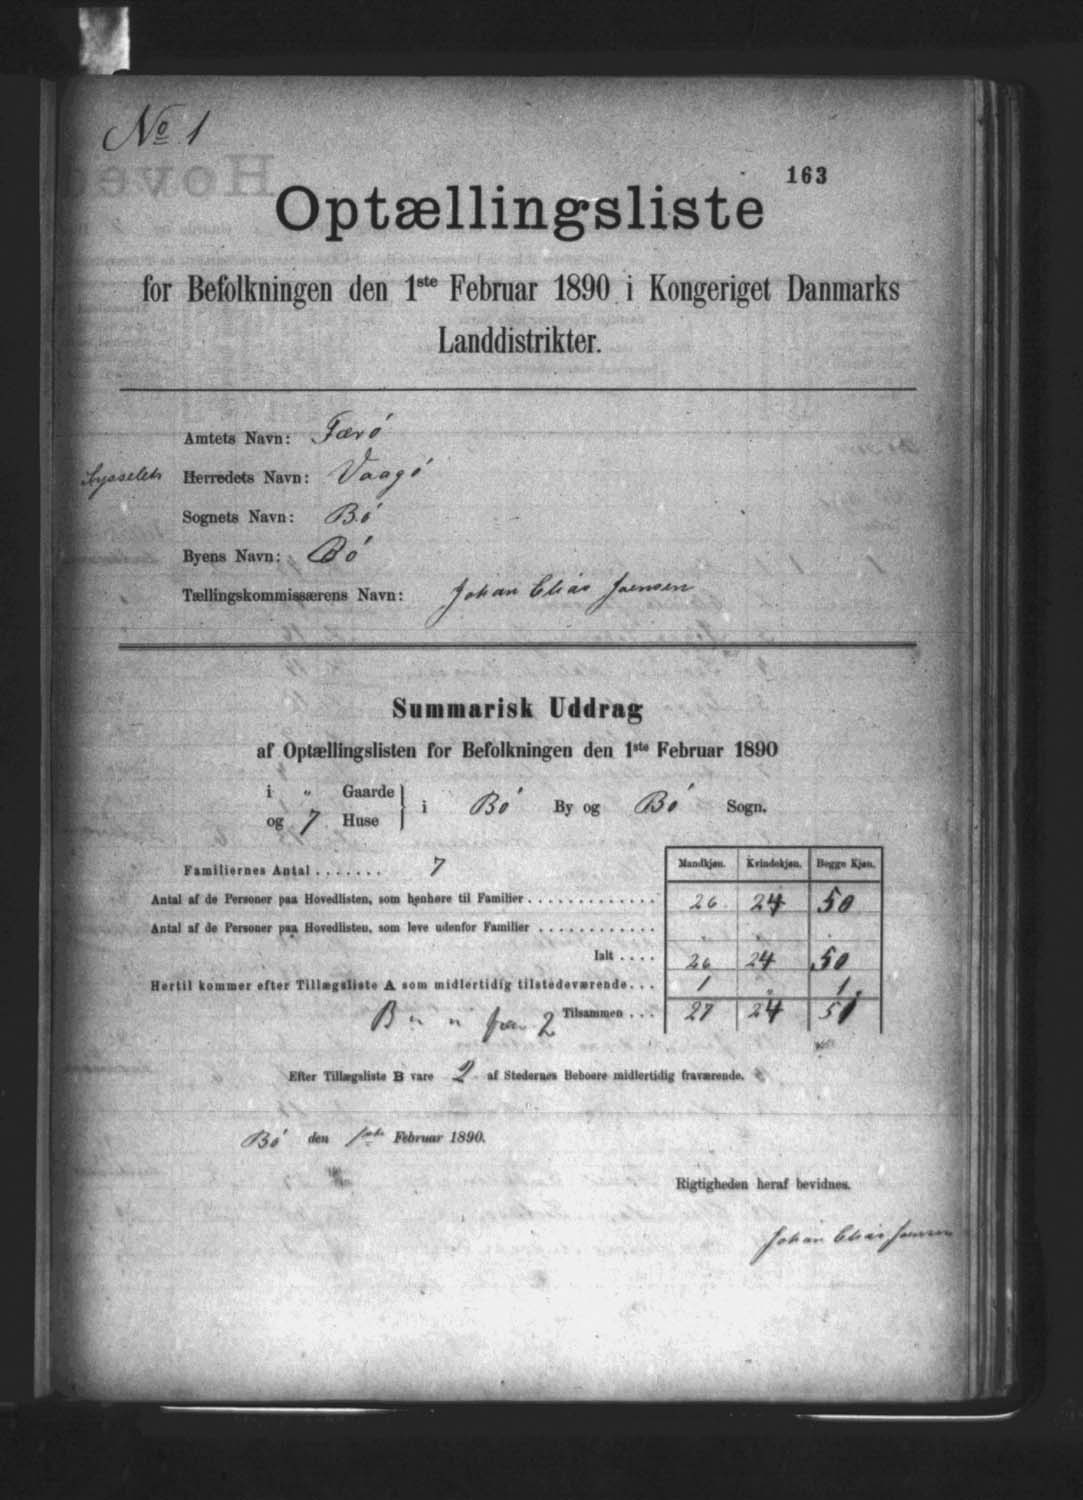 No 1
163
Optællingsliste
for Befolkningen den 1ste Februar 1890 i Kongeriget Danmarks
Landdistrikter.
Amtets Navn: Færø
Sysselets Herredets Navn: Vaagø
Sognets Navn: Bø
Byens Navn: Bø
Tællingskommissærens Navn: Johan Elias Joensen
Summarisk Uddrag
af Optællingslisten for Befolkningen den 1ste Februar 1890
i " Gaarde
og 7 Huse } i Bø By og Bø Sogn.
Mandkjøn. Kvindekjøn. Begge Kjøn.
Familiernes Antal . . . . . . . 7
Antal af de Personer paa Hovedlisten, som henhøre til Familier . . . . . . . . . . . . . 26 24 50
Antal af de Personer paa Hovedlisten, som leve udenfor Familier . . . . . . . . . . . . " " "
Ialt . . . . 26 24 50
Hertil kommer efter Tillægsliste A som midlertidig tilstedeværende. . . 1 " 1
B " " fra 2 Tilsammen . . . 27 24 51
Efter Tillægsliste B vare 2 af Stedernes Beboere midlertidig fraværende.
Bø den 1ste Februar 1890.
Rigtigheden heraf bevidnes.
Johan Elias Joensen